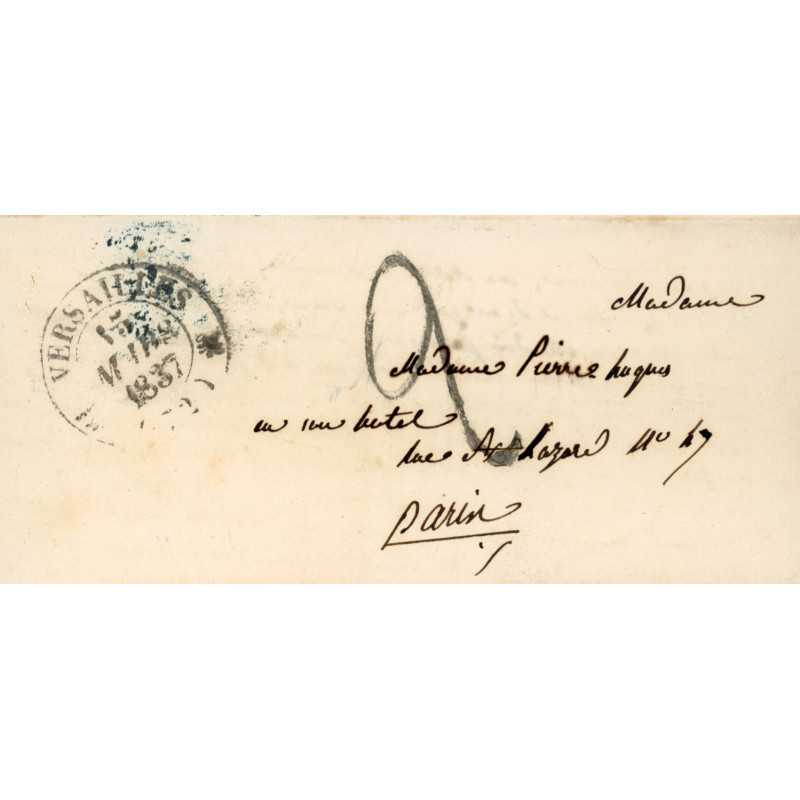 VERSAILLES
15
MARS
1837
2
Madame
Madame Pierre hugues
en son hotel
rue St Lazare N° 47
Paris